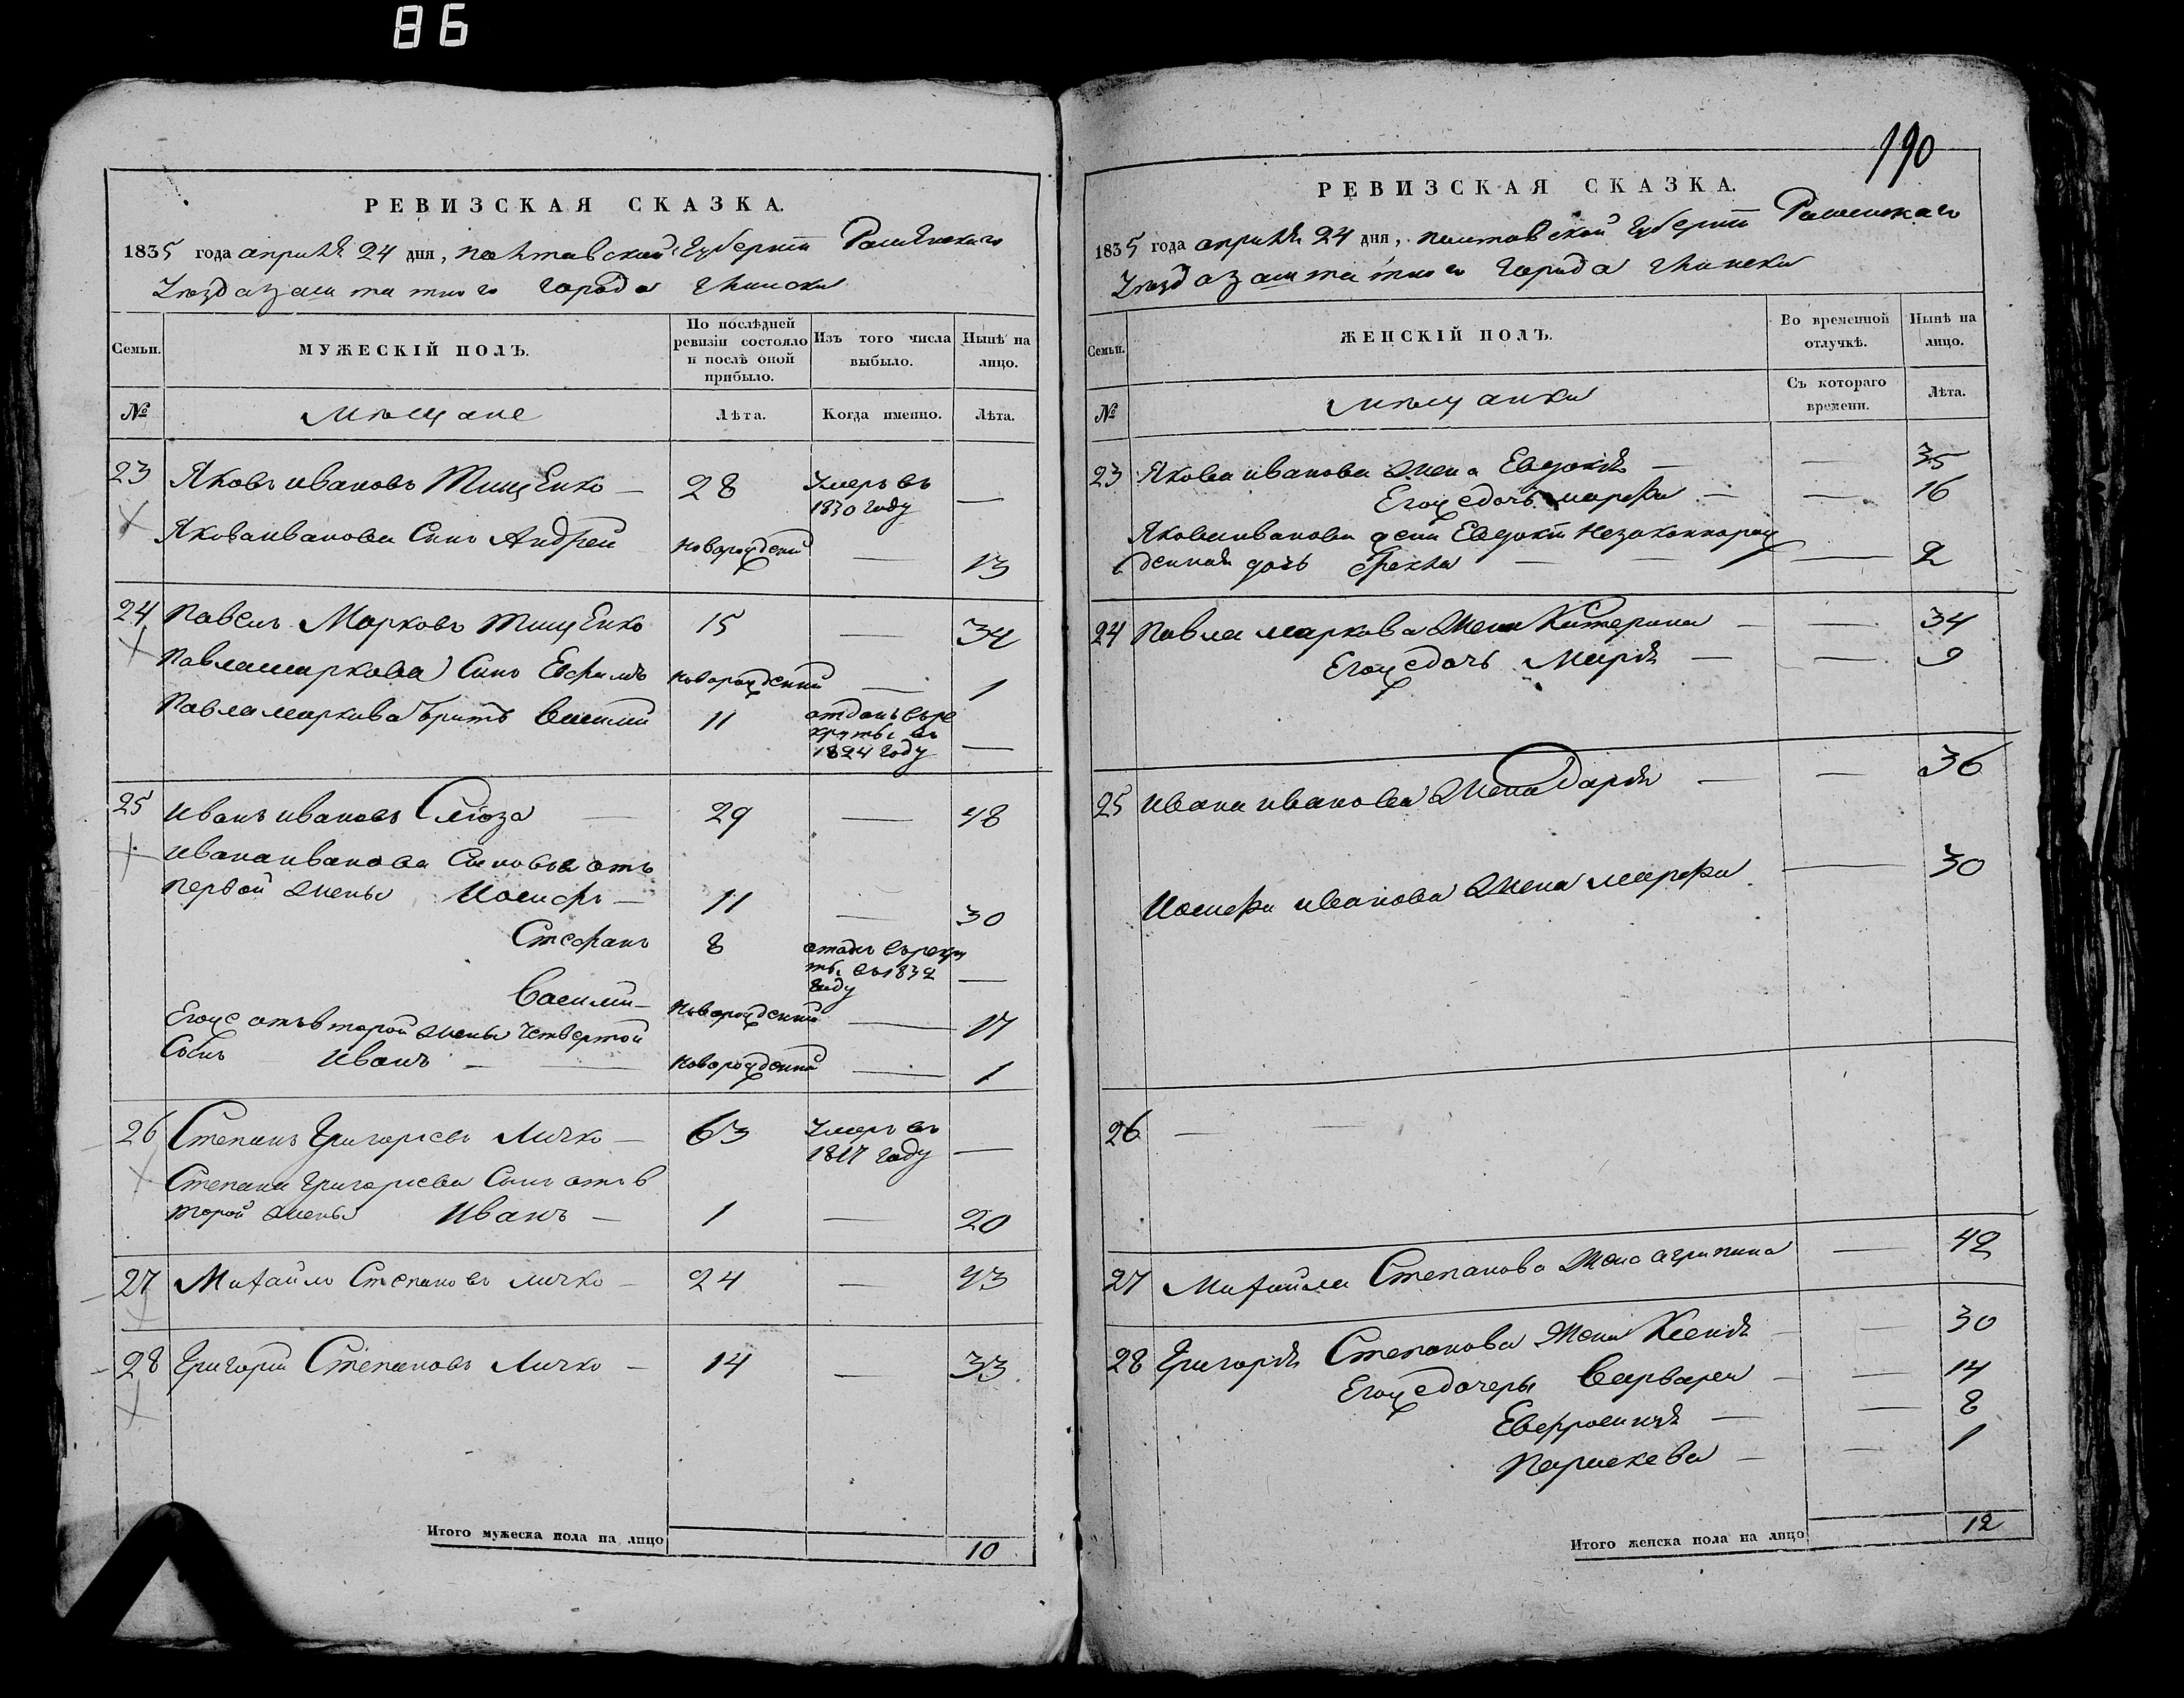 86
РЕВИЗСКАЯ СКАЗКА.
1835 года апрѣля 24 дня, Полтавской губерніи Роменскаго
Уезда заштатного города Глинска
Семьи.
МУЖЕСКІЙ ПОЛЪ.
По послѣдней ревизіи состояло и послѣ оной прибыло.
Изъ того числа выбыло.
Нынѣ на лицо.
№
мѣщане
Лѣта.
Когда именно.
Лѣта.
23 Яковъ ивановъ Тищенко — 28 Умеръ въ 1830 году —
Якова иванова Сынъ Андрей новорожденный — 13
24 Павелъ Марковъ Тищенко 15 — 34
Павла маркова Сынъ Евфимъ новорожденный — 1
Павла маркова братъ Василий 11 отданъ въ рекруты въ 1824 году —
25 Иванъ ивановъ Слюза — 29 — 48
Ивана иванова Сыновья отъ
первой жены Иосифъ — 11 — 30
Стефанъ 8 отданъ в рекруты въ 1832 году —
Василий — Новорожденный — 17
Его же отъ второй жены четвертой
Сынъ Иванъ — новорожденный — 1
26 Степанъ Григорьевъ Личко — 63 Умеръ въ 1817 году —
Степана Григорьева Сынъ отъ в
торой жены Иванъ — 1 — 20
27 Михайло Степановъ личко — 24 — 43
28 Григорий Степановъ Личко — 14 — 33
Итого мужеска пола на лицо 10
190
РЕВИЗСКАЯ СКАЗКА.
1835 года апрѣля 24 дня, полтавской губерніи Роменскаго
Уезда заштатного города Глинска
Семьи.
ЖЕНСКІЙ ПОЛЪ.
Во временной отлучкѣ.
Нынѣ на лицо.
№
мѣщанки
Съ котораго времени.
Лѣта.
23 Якова иванова жена Евдокія — — 35
Его же дочь марфа — — 16
Якова иванова жены Евдокіи Незаконнорож
денная дочь Фекла — — 2
24 Павла маркова жена Катерина — — 34
Его же дочь Марія — — 9
25 Ивана иванова жена Дарія — — 36
Иосифа иванова жена марфа — 30
26 — —
27 Михайла Степанова жена агрипина — 42
28 Григорія Степанова жена Ксенія — — 30
Его же дочеры Варвара — — 14
Евфросинія — — 8
Параскева — — 1
Итого женска пола на лицо 12